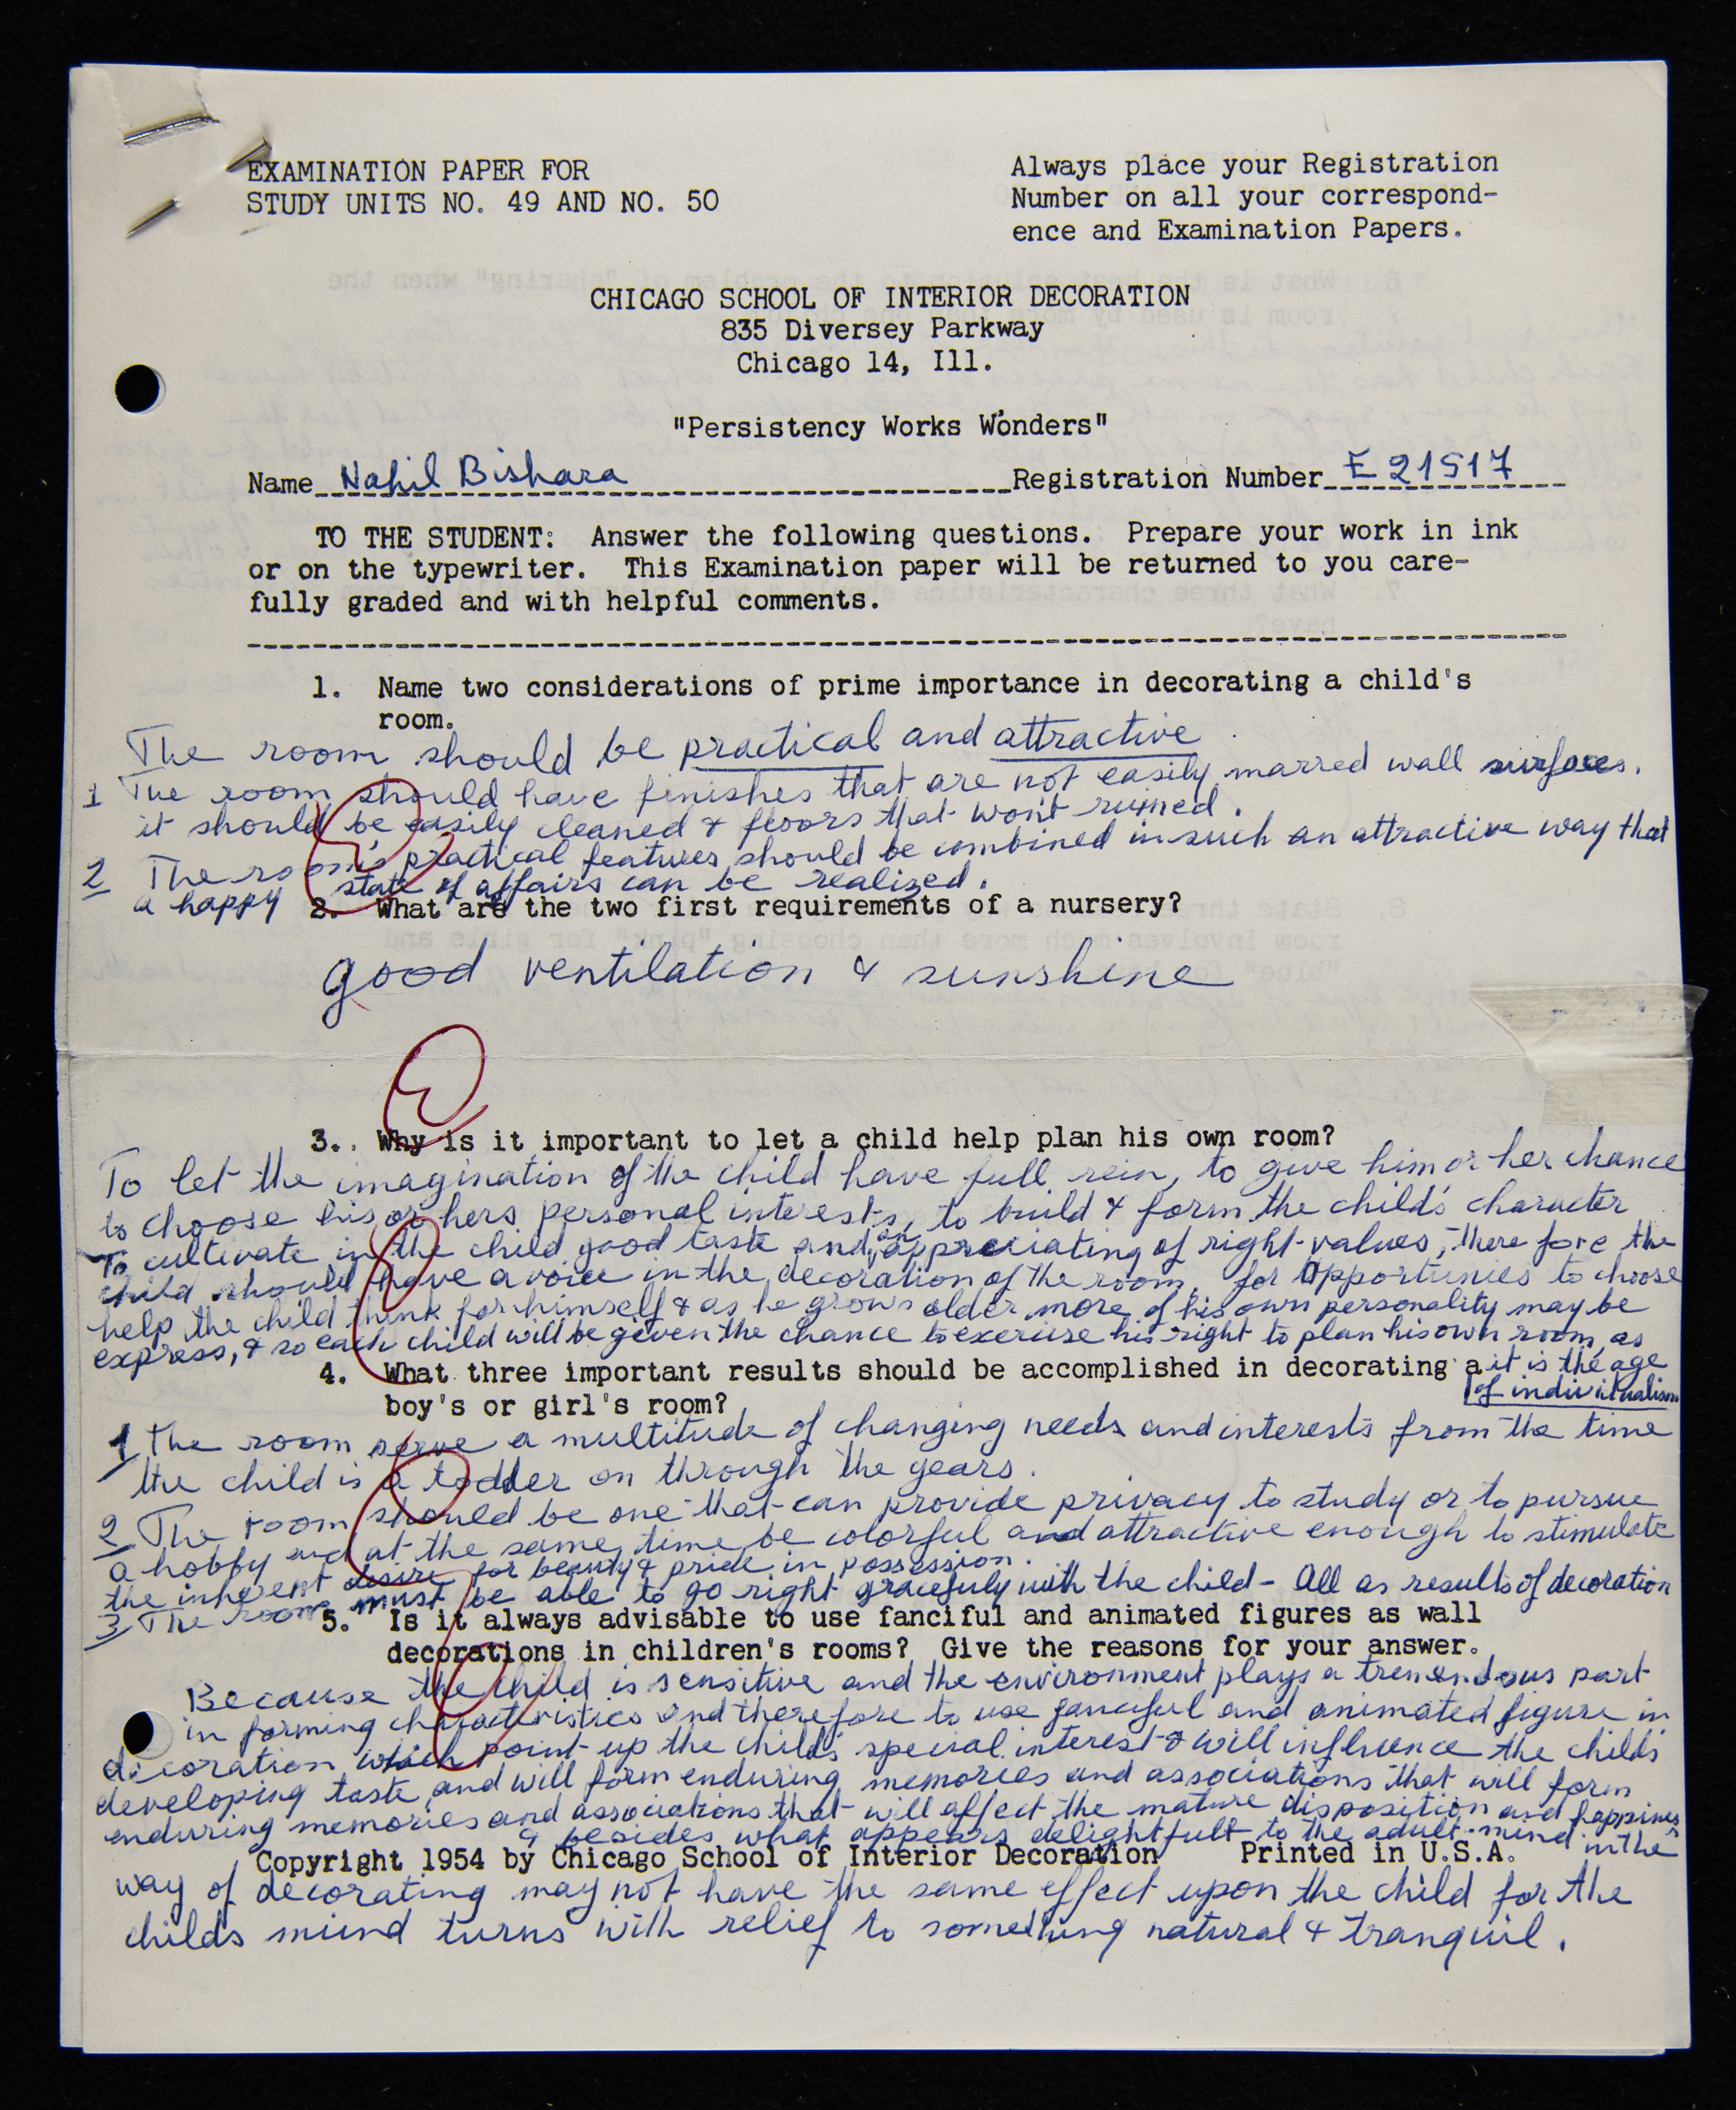 EXAMINATION PAPER FOR
STUDY UNITS NO. 49 AND NO. 50
Always place your Registration
Number on all your correspond-
ence and Examination Papers.
CHICAGO SCHOOL OF INTERIOR DECORATION
835 Diversey Parkway
Chicago 14, Ill.
"Persistency Works Wonders"
Name Nahil Bishara Registration Number E 21517
TO THE STUDENT: Answer the following questions. Prepare your work in ink
or on the typewriter. This Examination paper will be returned to you care-
fully graded and with helpful comments.
1. Name two considerations of prime importance in decorating a child's
room.
The room should be practical and attractive.
1 The room should have finishes that are not easily marred wall surfaces.
it should be easily cleaned & floors that won't ruined.
2 The room's practical features should be combined in such an attractive way that
a happy state of affairs can be realized.
2. What are the two first requirements of a nursery?
good ventilation & sunshine
3. Why is it important to let a child help plan his own room?
To let the imagination of the child have full rein, to give him or her chance
to choose his or hers personal interests, to build & form the child's character
To cultivate in the child good taste and an appreciating of right values, therefore the
child should have a voice in the decoration of the room, for opportunies to choose
help the child think for himself & as he grows older more of his own personality may be
express, & so each child will be given the chance to exercise his right to plan his own room, as
it is the age
of individualism
4. What three important results should be accomplished in decorating a
boy's or girl's room?
1 The room serve a multitude of changing needs and interests from the time
the child is a toddler on through the years.
2 The room should be one that can provide privacy to study or to pursue
a hobby and at the same time be colorful and attractive enough to stimulate
the inherent desire for beauty & pride in possession.
3 The room must be able to go right gracefuly with the child - All as results of decoration
5. Is it always advisable to use fanciful and animated figures as wall
decorations in children's rooms? Give the reasons for your answer.
Because the child is sensitive and the environment plays a tremendous part
in forming characteristics and therefore to use fanciful and animated figure in
decoration which point up the child's special interest & will influence the child's
developing taste and will form enduring memories and associations that will form
enduring memories and associations that will affect the mature disposition and happines
& besides what appears delightfull to the adult mind in the
Copyright 1954 by Chicago School of Interior Decoration Printed in U.S.A.
way of decorating may not have the same effect upon the child for the
childs miind turns with relief to something natural & tranquil.